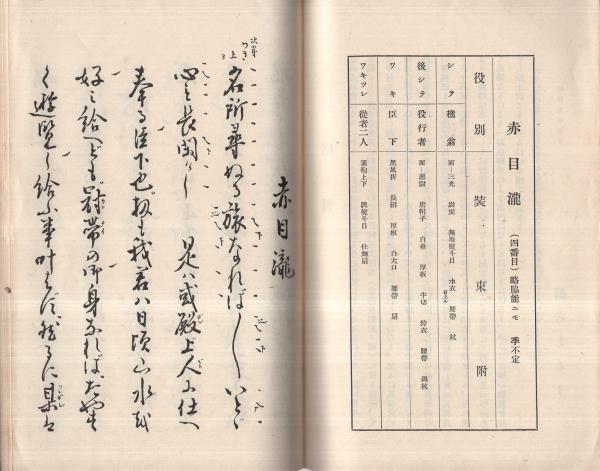 赤目瀧 (四番目)略脇能ニモ 季不定
役別 裝束附
シテ 樵翁 面―三光 尉髪 無地熨斗目 水衣肩上ル 腰帶 杖
後シテ 役行者 面―惡尉 唐帽子 白垂 厚板 半切 狩衣 腰帶 錫杖
ワキ 臣下 黑風折 長絹 厚板 白大口 腰帶 扇
ワキツレ 從者二人 素袍上下 段熨斗目 仕舞扇
赤目瀧
次第 ワキ 上
名所尋ぬる旅なれば〳〵いとゞ
心も長閑けし 是ハ或殿上人に仕へ
奉る臣下也扨も我君ハ日頃山水を
好ミ給へども冠帯の御身なれば、たやす
く遊覧し給ふ事叶はず然るに